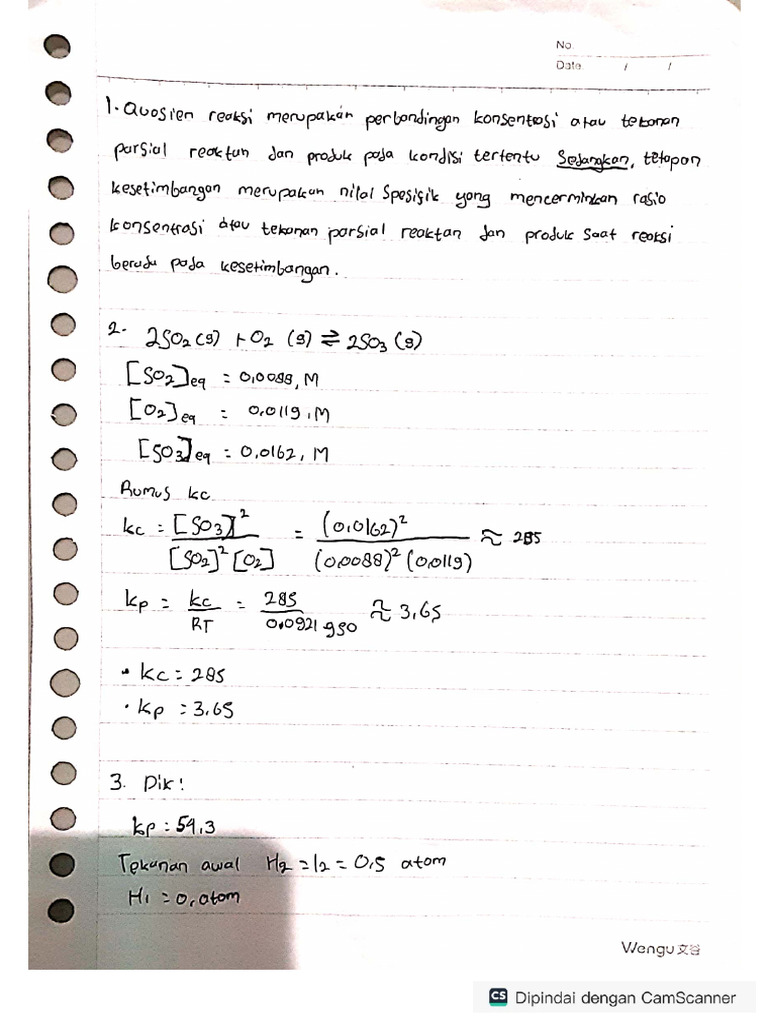 No.
Date. / /
1. Quosien reaksi merupakan perbandingan konsentrasi atau tekanan
parsial reaktan dan produk pada kondisi tertentu Sedangkan, tetapan
kesetimbangan merupakan nilai Spesifik yang mencerminkan rasio
konsentrasi atau tekanan parsial reaktan dan produk saat reaksi
berada pada kesetimbangan.
2. 2SO₂ (g) + O₂ (g) ⇌ 2SO₃ (g)
[SO₂]eq = 0,0088, M
[O₂]eq = 0,0119, M
[SO₃]eq = 0,0162, M
Rumus kc
kc = [SO₃]² / [SO₂]² [O₂] = (0,0162)² / (0,0088)² (0,0119) ≈ 285
kp = kc / RT = 285 / 0,0821 950 ≈ 3,65
• kc = 285
• kp = 3,65
3. Dik!
kp = 54,3
Tekanan awal H₂ = I₂ = 0,5 atom
HI = 0, atom
Wengu 文谷
CS Dipindai dengan CamScanner